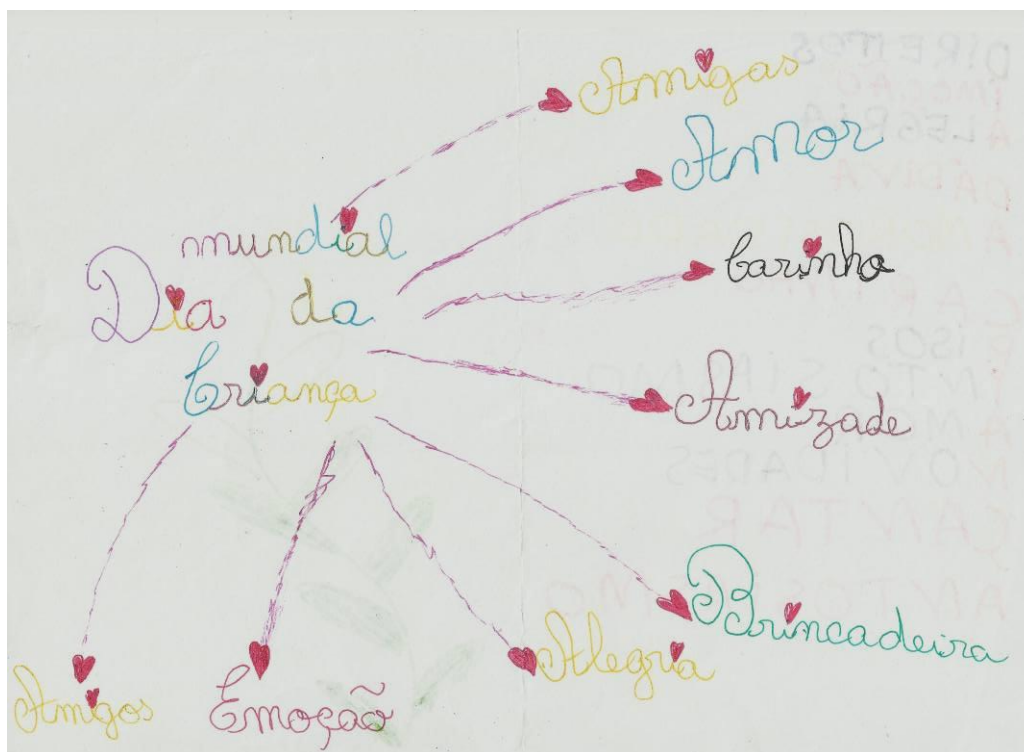 mundial
Dia da
Criança
Amigas
Amor
Carinho
Amizade
Brincadeira
Alegria
Emoção
Amigos